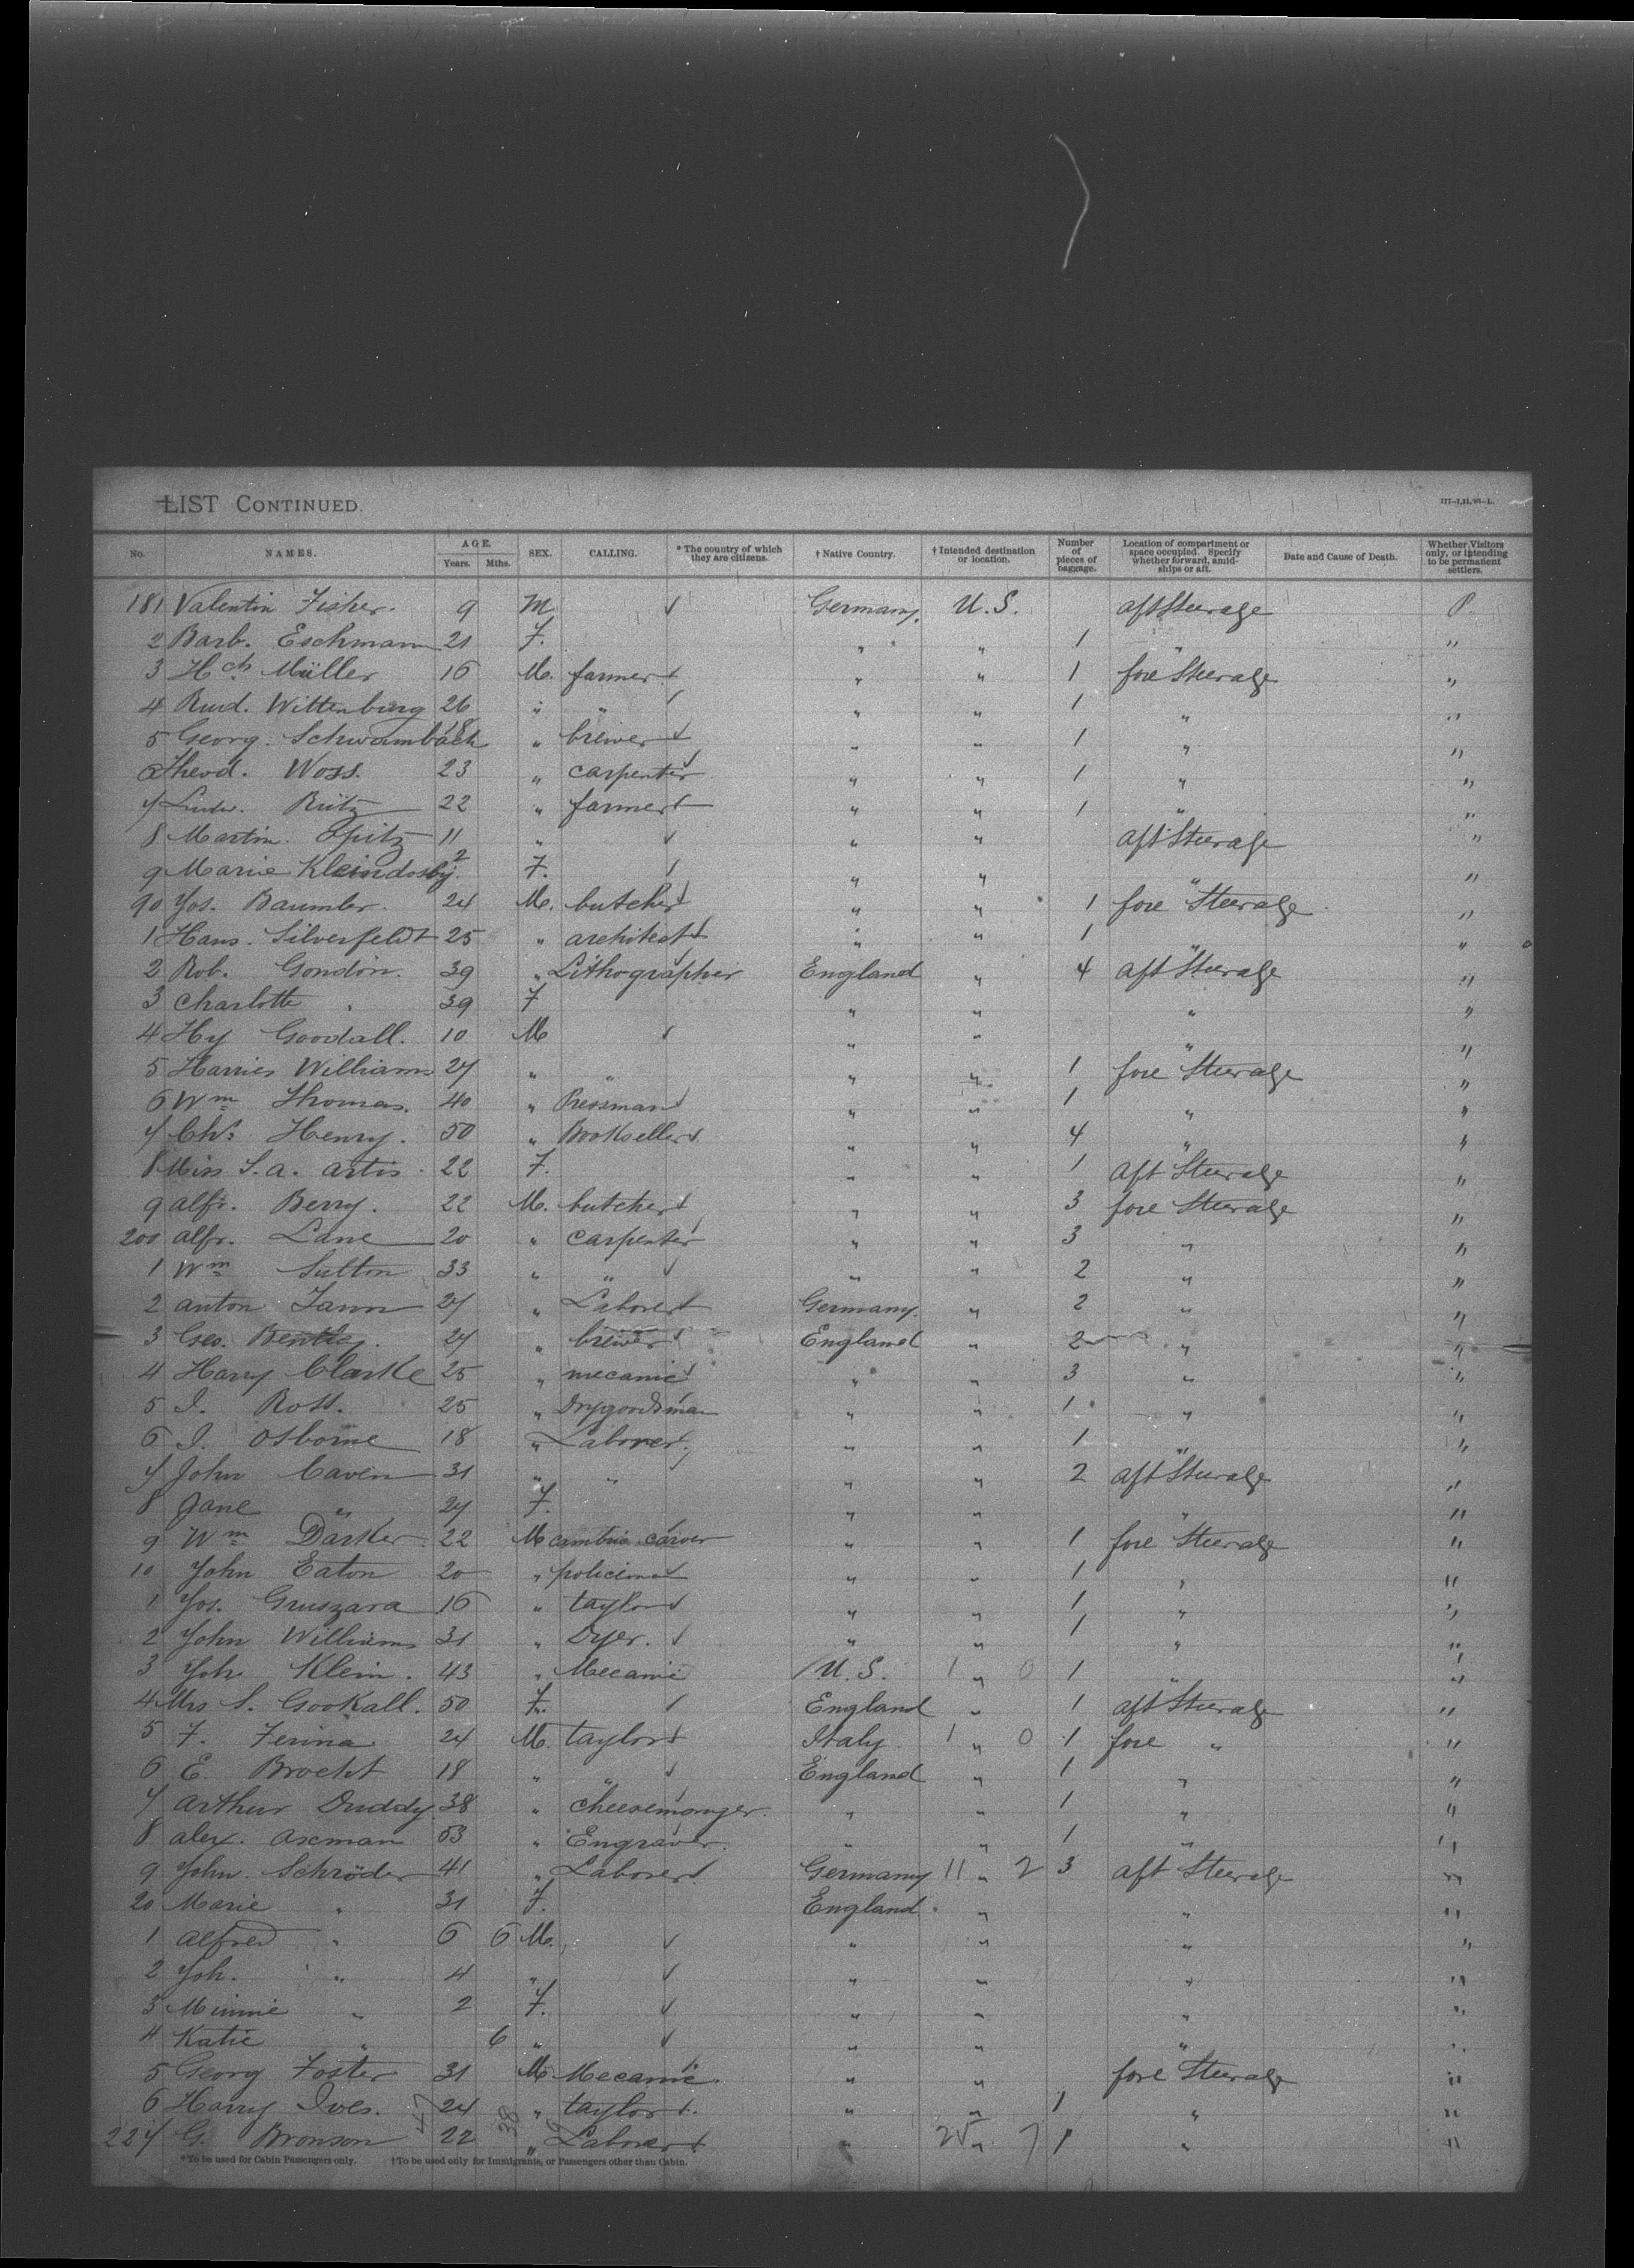 LIST CONTINUED.
No. NAMES. AGE. Years. Mths. SEX. CALLING. * The country of which they are citizens. † Native Country. † Intended destination or location. Number of pieces of baggage. Location of compartment or space occupied. Specify whether forward, amidships or aft. Date and Cause of Death. Whether Visitors only, or intending to be permanent settlers.
181 Valentin Fisher. 9 M ✓ Germany. U.S. aft Steerage P.
2 Barb. Eschmann 21 F. " " 1 " "
3 Hch. Müller 16 M. farmer ✓ " " 1 fore Steerage "
4 Rud. Wittenburg 26 " " ✓ " " 1 " "
5 Georg. Schwambach 18 " brewer ✓ " " 1 " "
6 Theod. Woss. 23 " carpenter ✓ " " 1 " "
7 Ludw. Bütz 22 " farmer ✓ " " 1 " "
8 Martin. Spitz 11 " ✓ " " aft Steerage "
9 Marie Kleindosby 2 F. ✓ " " " "
90 Jos. Baumler. 24 M. butcher ✓ " " 1 fore Steerage "
1 Hans. Silverfeldt 25 " architect ✓ " " 1 " "
2 Rob. Gondon. 39 " Lithographer England " 4 aft Steerage "
3 Charlotte " 39 F " " " "
4 Hy Goodall. 10 M ✓ " " " "
5 Harries Williams 27 " " " " 1 fore Steerage "
6 Wm Thomas. 40 " Pressman ✓ " " 1 " "
7 Chs. Henry. 50 " Bookseller ✓ " " 4 " "
8 Miss S. a. artis. 22 F. " " 1 aft Steerage "
9 alfr. Berry. 22 M. butcher ✓ " " 3 fore Steerage "
200 alfr. Lane 20 " carpenter ✓ " " 3 " "
1 Wm Sutton 33 " " ✓ " " 2 " "
2 anton Jann 27 " Laborer ✓ Germany. " 2 " "
3 Geo. Bentley. 27 " brewer ✓ England " 2 " "
4 Harry Clarke 25 " mecanic ✓ " " 3 " "
5 J. Ross. 25 " Drygoodsman " " 1 " "
6 J. Osborne 18 " Laborer ✓ " " 1 " "
7 John Caven 31 " " ✓ " " 2 aft Steerage "
8 Jane " 27 F. " " " "
9 Wm Darker 22 M carver ✓ " " 1 fore Steerage "
10 John Eaton 20 " policeman ✓ " " 1 " "
1 Jos. Gruszara 16 " taylor ✓ " " 1 " "
2 John Williams 31 " Dyer. ✓ " " 1 " "
3 Joh. Klein. 43 " Mecanic U.S. 1 " 0 1 " "
4 Mrs S. Gookall. 50 F. ✓ England " 1 aft Steerage "
5 F. Ferina 24 M. taylor ✓ Italy 1 " 0 1 fore " "
6 E. Brockt 18 " " ✓ England " 1 " "
7 Arthur Duddy. 38 " cheesemonger. " " 1 " "
8 alex. axman 53 " Engraver. " " 1 " "
9 John. Schröder 41 " Laborer ✓ Germany 11 " 2 3 aft Steerage "
20 Marie " 31 F. England. " " "
1 alfred " 6 6 M. ✓ " " " "
2 Joh. " 4 " ✓ " " " "
3 Minnie " 2 F. ✓ " " " "
4 Katie " 6 " ✓ " " " "
5 Georg Foster 31 M Mecanic. " " fore Steerage "
6 Harry Ives. 24 " taylor ✓ " " 1 " "
227 G. Bronson 22 " Laborer ✓ " 25 " 7 1 " "
* To be used for Cabin Passengers only. † To be used only for Immigrants, or Passengers other than Cabin.